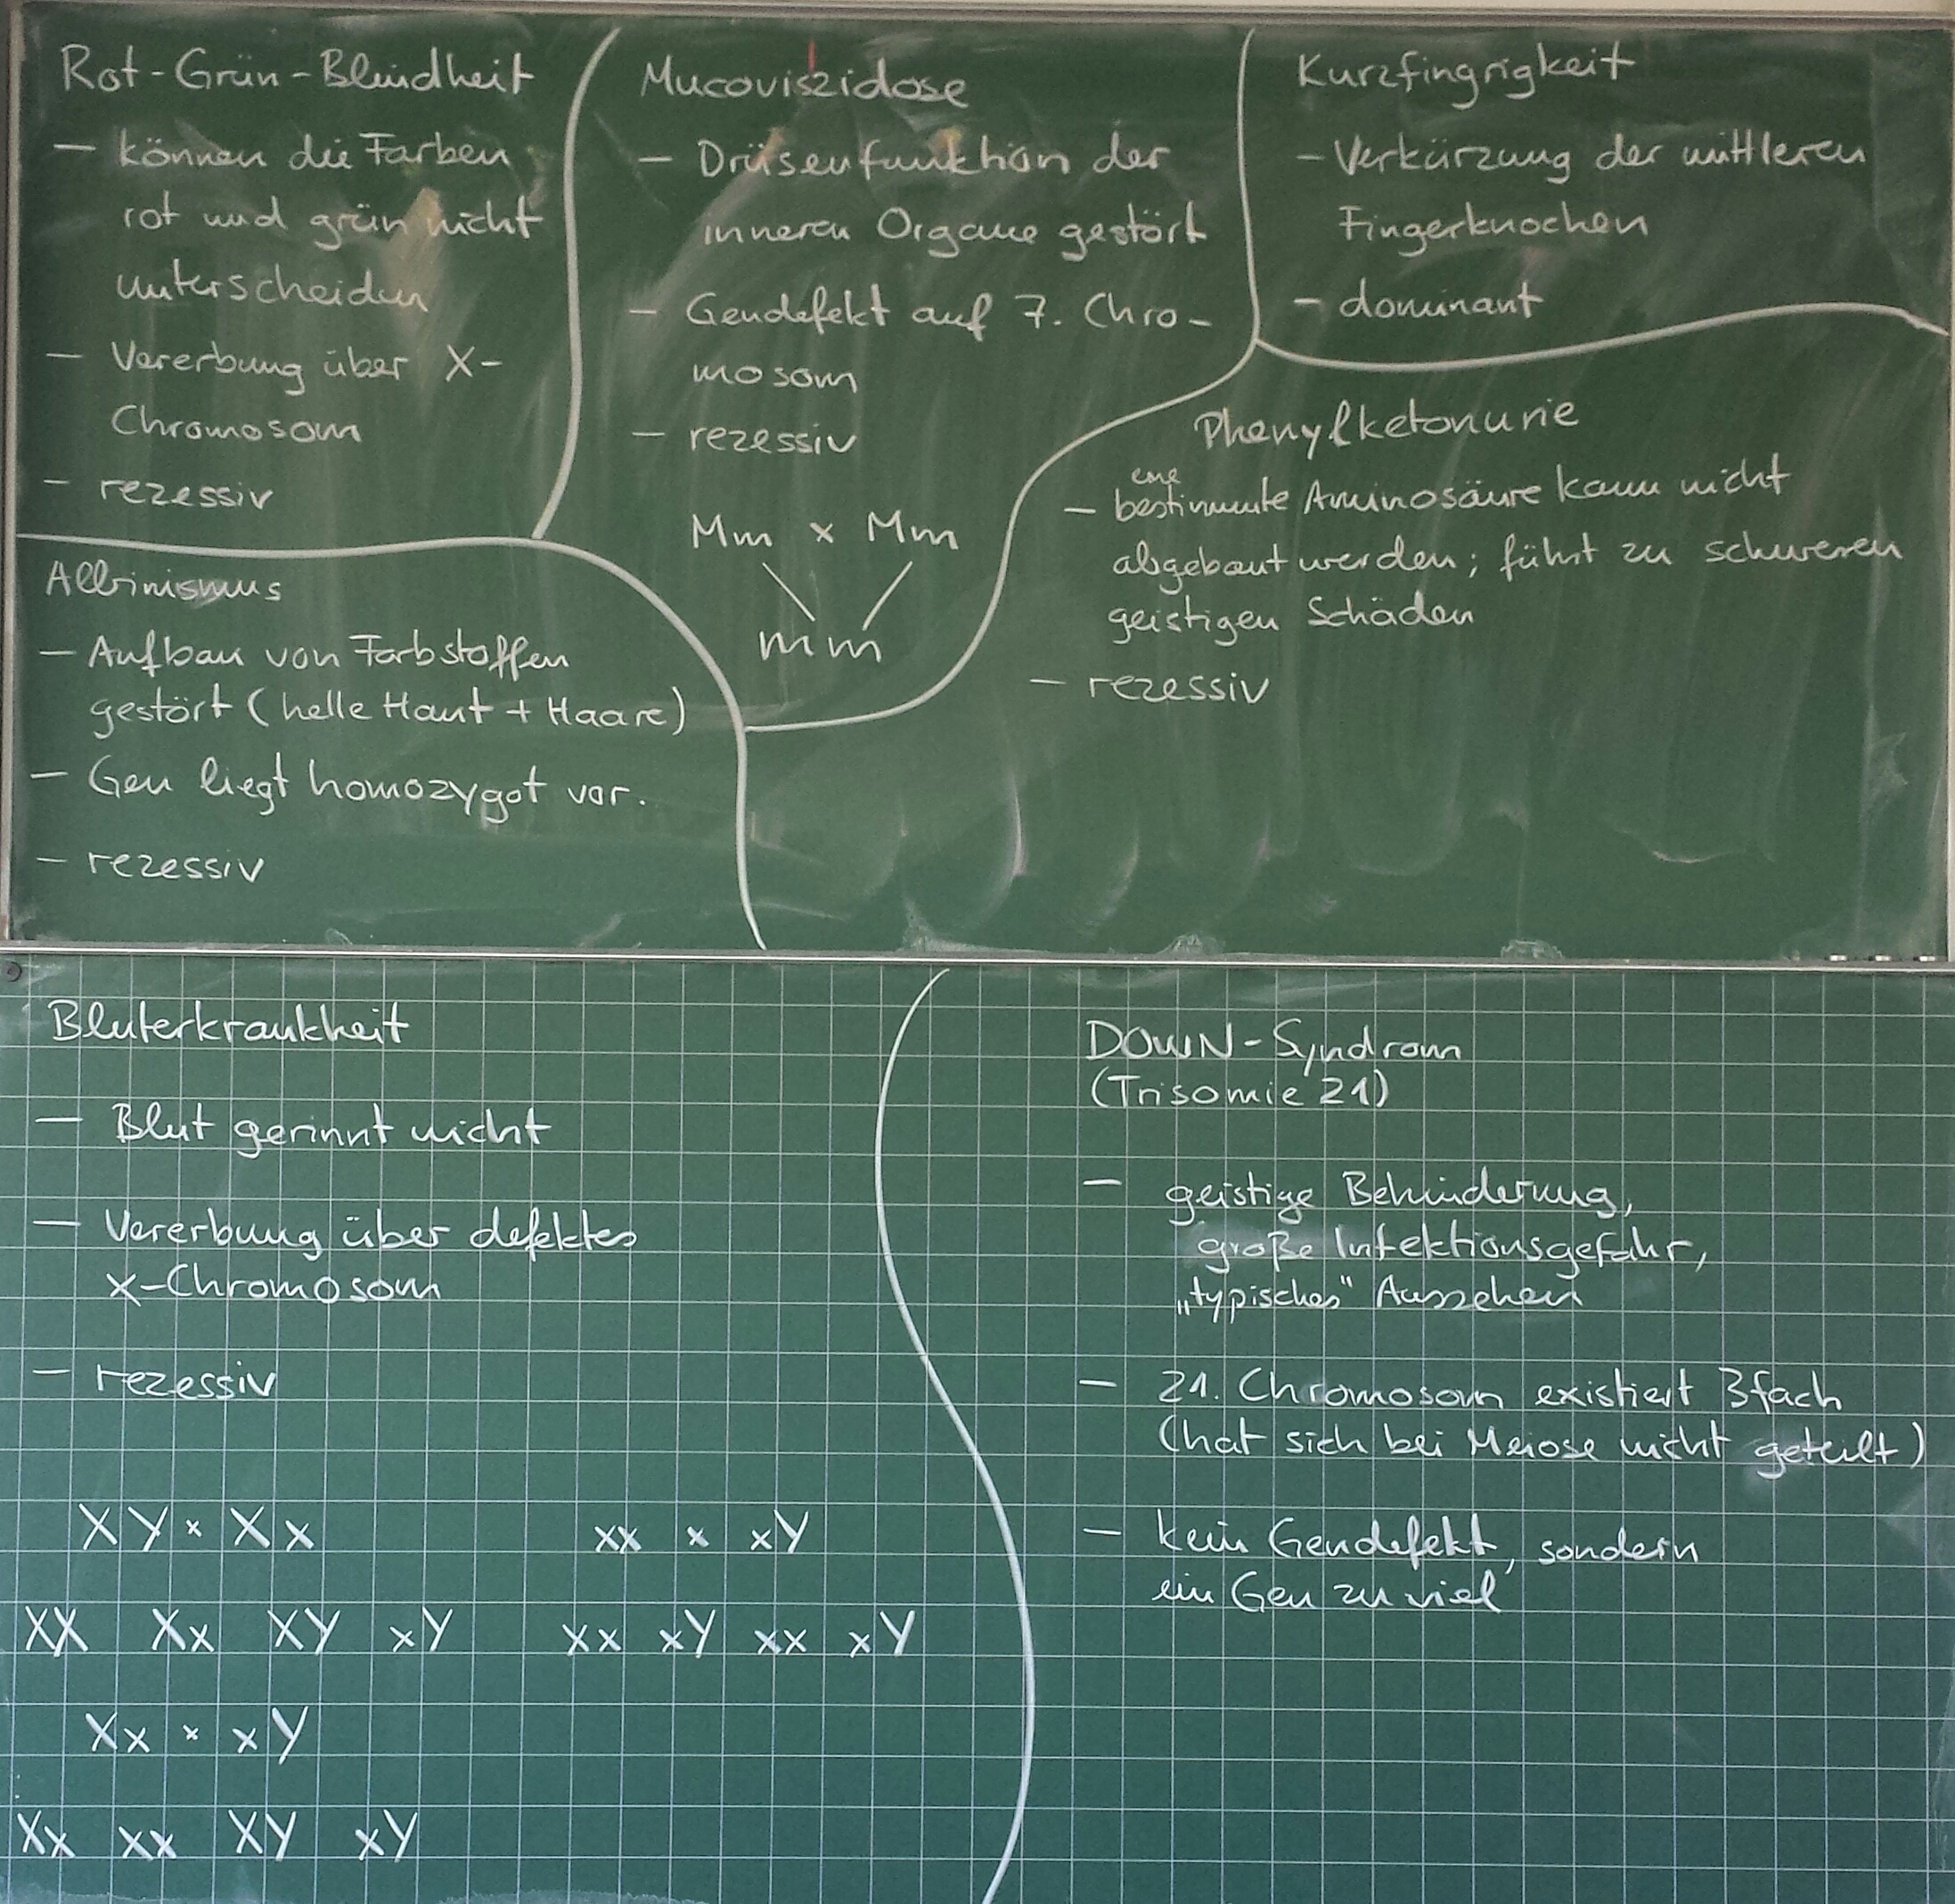 Rot-Grün-Blindheit
– können die Farben
rot und grün nicht
unterscheiden
– Vererbung über X-
Chromosom
– rezessiv
Mucoviszidose
– Drüsenfunktion der
inneren Organe gestört
– Gendefekt auf 7. Chro-
mosom
– rezessiv
Mm x Mm
mm
Kurzfingrigkeit
– Verkürzung der mittleren
Fingerknochen
– dominant
Phenylketonurie
eine
– bestimmte Aminosäure kann nicht
abgebaut werden; führt zu schweren
geistigen Schäden
– rezessiv
Albinismus
– Aufbau von Farbstoffen
gestört (helle Haut + Haare)
– Gen liegt homozygot vor.
– rezessiv
Bluterkrankheit
– Blut gerinnt nicht
– Vererbung über defektes
X-Chromosom
– rezessiv
XY x Xx
XX Xx XY xY
Xx x xY
Xx xx XY xY
xx x xY
xx xY xx xY
DOWN-Syndrom
(Trisomie 21)
– geistige Behinderung,
große Infektionsgefahr,
„typisches" Aussehen
– 21. Chromosom existiert 3fach
(hat sich bei Meiose nicht geteilt)
– kein Gendefekt, sondern
ein Gen zu viel